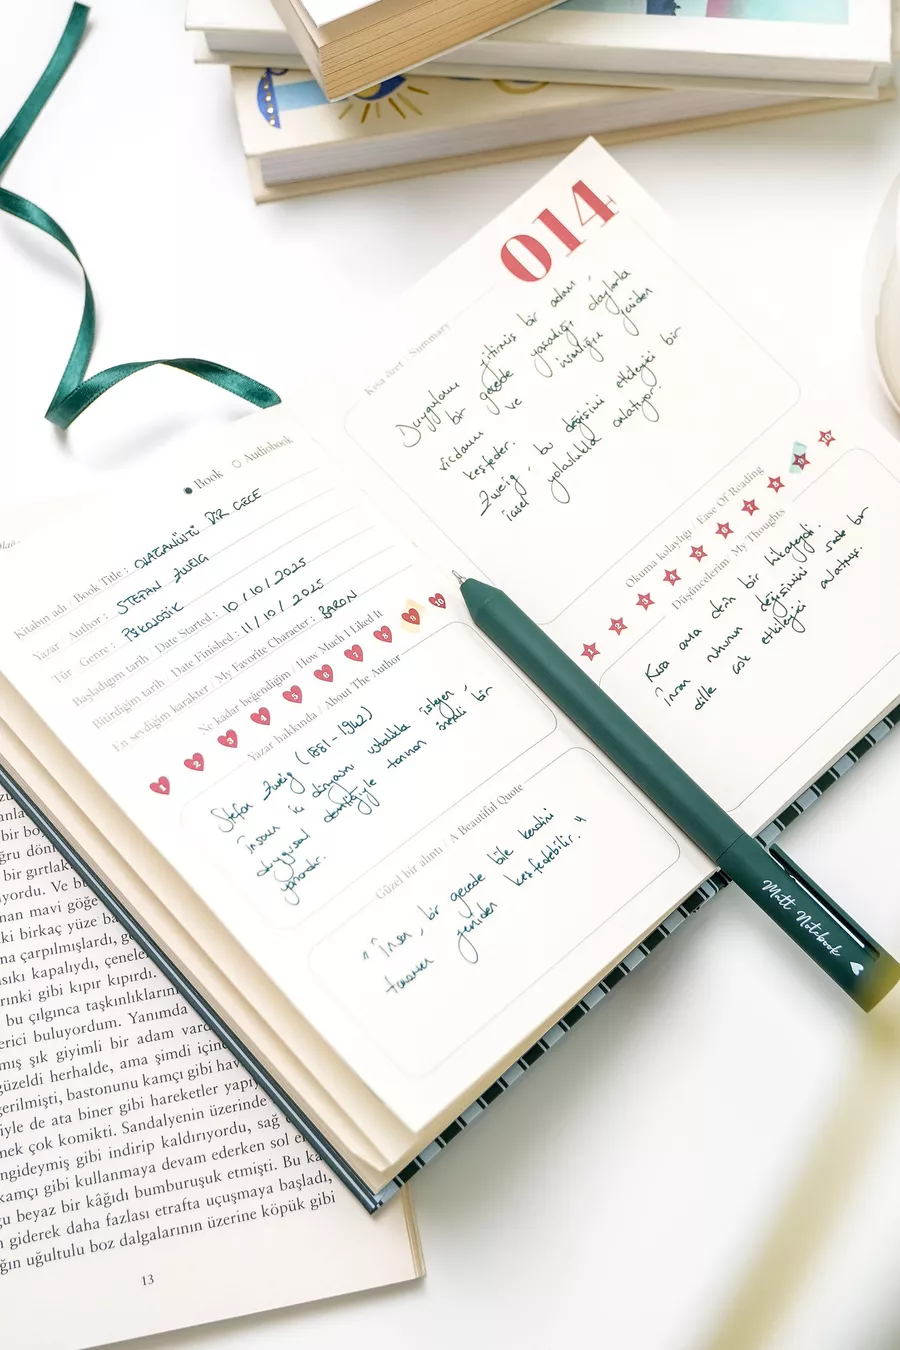 Book Audiobook
Kitabın adı / Book Title : OLAĞANÜSTÜ BİR GECE
Yazar / Author : STEFAN ZWEIG
Tür / Genre : PSİKOLOJİK
Başladığım tarih / Date Started : 10/10/2025
Bitirdiğim tarih / Date Finished : 11/10/2025
En sevdiğim karakter / My Favorite Character : BARON
Ne kadar beğendiğim / How Much I Liked It
1 2 3 4 5 6 7 8 9 10
Yazar hakkında / About The Author
Stefan Zweig (1881-1942)
İnsanın iç dünyasını ustalıkla işleyen,
duygusal derinliğiyle tanınan önemli bir
yazardır.
Güzel bir alıntı / A Beautiful Quote
"İnsan, bir gecede bile kendini
tamamen yeniden keşfedebilir."
014
Kısa özet / Summary
Duygularını yitirmiş bir adam,
bir gecede yaşadığı olaylarla
vicdanını ve insanlığını yeniden
keşfeder.
Zweig, bu değişimi etkileyici bir
içsel yolculukla anlatıyor.
Okuma kolaylığı / Ease Of Reading
1 2 3 4 5 6 7 8 9 10
Düşüncelerim / My Thoughts
Kısa ama derin bir hikayeydi.
İnsan ruhunun değişimini sade bir
dille çok etkileyici anlatmış.
Matt Notebook
bir gırtlak
yordu. Ve bu
nan mavi göğe
ki birkaç yüze
na çarpılmışlardı,
ısıkı kapalıydı, çeneler
rınki gibi kıpır kıpırdı.
bu çılgınca taşkınlıkların
erici buluyordum. Yanımda
mış şık giyimli bir adam vard
güzeldi herhalde, ama şimdi içinde
gerilmişti, bastonunu kamçı gibi hav
iyle de ata biner gibi hareketler yapıy
mek çok komikti. Sandalyenin üzerinde
ngideymiş gibi indirip kaldırıyordu, sağ
kamçı gibi kullanmaya devam ederken sol el
gu beyaz bir kâğıdı bumburuşuk etmişti. Bu ka
n giderek daha fazlası etrafta uçuşmaya başladı,
ğın uğultulu boz dalgalarının üzerine köpük gibi
13